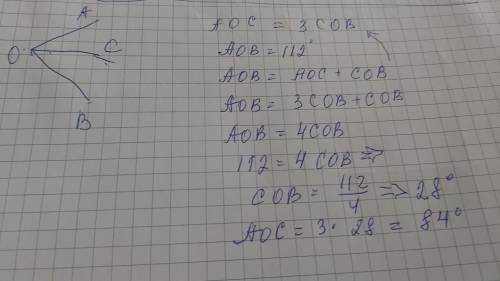 A
O
C
B
AOC = 3 COB
AOB = 112°
AOB = AOC + COB
AOB = 3COB + COB
AOB = 4COB
112 = 4 COB =>
COB = 112/4 => 28°
AOC = 3 · 28 = 84°